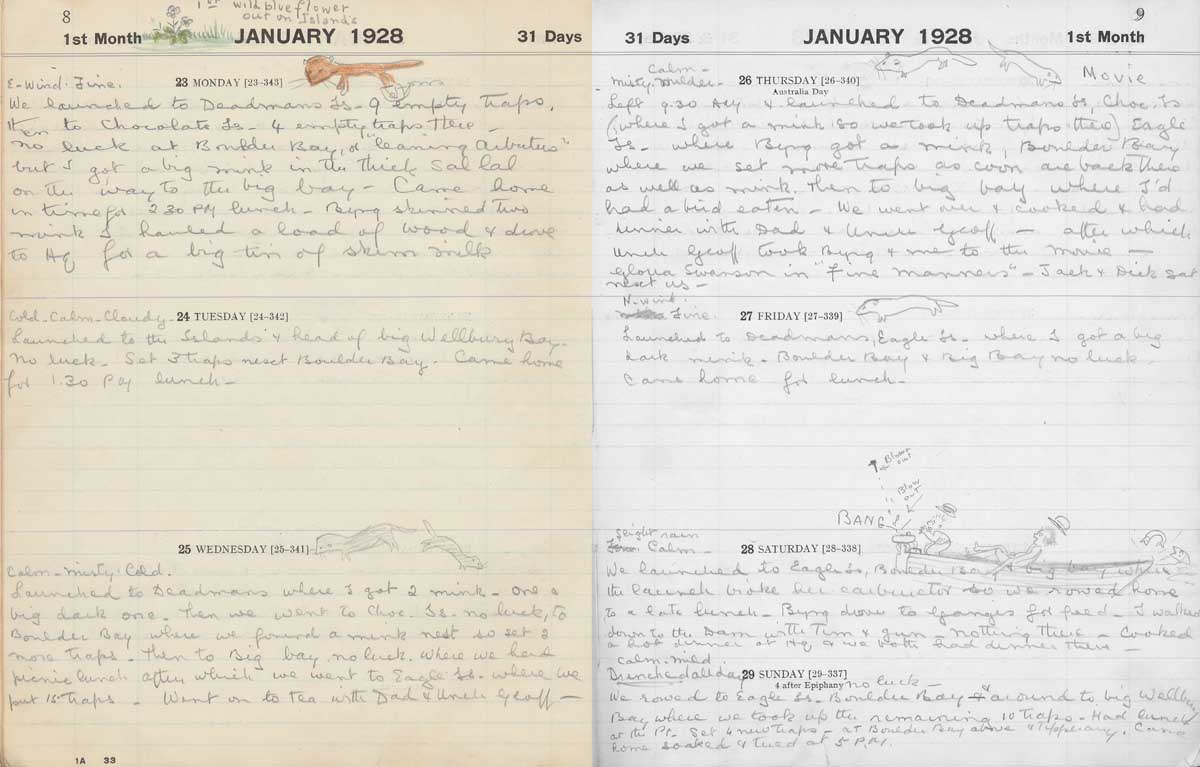 8
1st wild blue flower
out on Islands
1st Month
JANUARY 1928
31 Days
E-Wind. Fine.
23 MONDAY [23-343]
We launched to Deadmans Is - 9 empty traps,
then to Chocolate Is - 4 empty traps there -
no luck at Boulder Bay, or "leaning Arbutus"
but I got a big mink in the thick Sallal
on the way to the big bay - Came home
in time for 2 30 PM lunch - Byng skinned two
mink I hauled a load of wood & drove
to Hq for a big tin of skim milk
Cold - Calm - Cloudy -
24 TUESDAY [24-342]
Launched to the Islands & head of big Wellbury Bay -
No luck - Set 3 traps nest Boulder Bay. Came home
for 1.30 PM lunch -
25 WEDNESDAY [25-341]
Calm - misty. Cold.
Launched to Deadmans where I got 2 mink - one a
big dark one. Then we went to Choc. Is - no luck, to
Boulder Bay where we found a mink nest so set 2
more traps. Then to Big bay no luck. Where we had
picnic lunch after which we went to Eagle Is. where we
put 15 traps - Went on to tea with Dad & Uncle Geoff -
1A 33
9
31 Days
JANUARY 1928
1st Month
Calm -
misty. milder -
26 THURSDAY [26-340]
Australia Day
Movie
Left 9.30 AM & launched to Deadmans Is, Choc. Is
(where I got a mink so we took up traps there) Eagle
Is - where Byng got a mink, Boulder Bay
where we set more traps as coon are back there
as well as mink. Then to big bay where I'd
had a bird eaten - We went over & cooked & had
dinner with Dad & Uncle Geoff - after which
Uncle Geoff took Byng & me to the movie -
Gloria Swanson in "Fine Manners" - Jack & Dick sat
next us -
N-wind.
Fine.
27 FRIDAY [27-339]
Launched to Deadmans, Eagle Is. where I got a big
dark mink - Boulder Bay & Big Bay no luck -
Came home for lunch -
Blow
out
Blow
out
BANG!
Slight rain
Calm -
28 SATURDAY [28-338]
We launched to Eagle Is, Boulder Bay & big bay where
the launch broke her carburetor so we rowed home
to a late lunch - Byng down to Ganges for feed - I walked
down to the Dam with Tim & gun - nothing there - Cooked
a hot dinner at Hq & we both had dinner there -
Calm - mild
Drenched all day
29 SUNDAY [29-337]
4 after Epiphany
no luck -
We rowed to Eagle Is - Boulder Bay & around to big Wellbury
Bay where we took up the remaining 10 traps - Had lunch
at the Pt. Set 4 new traps - at Boulder Bay above & Tipperary. Came
home soaked & tired at 5 PM.